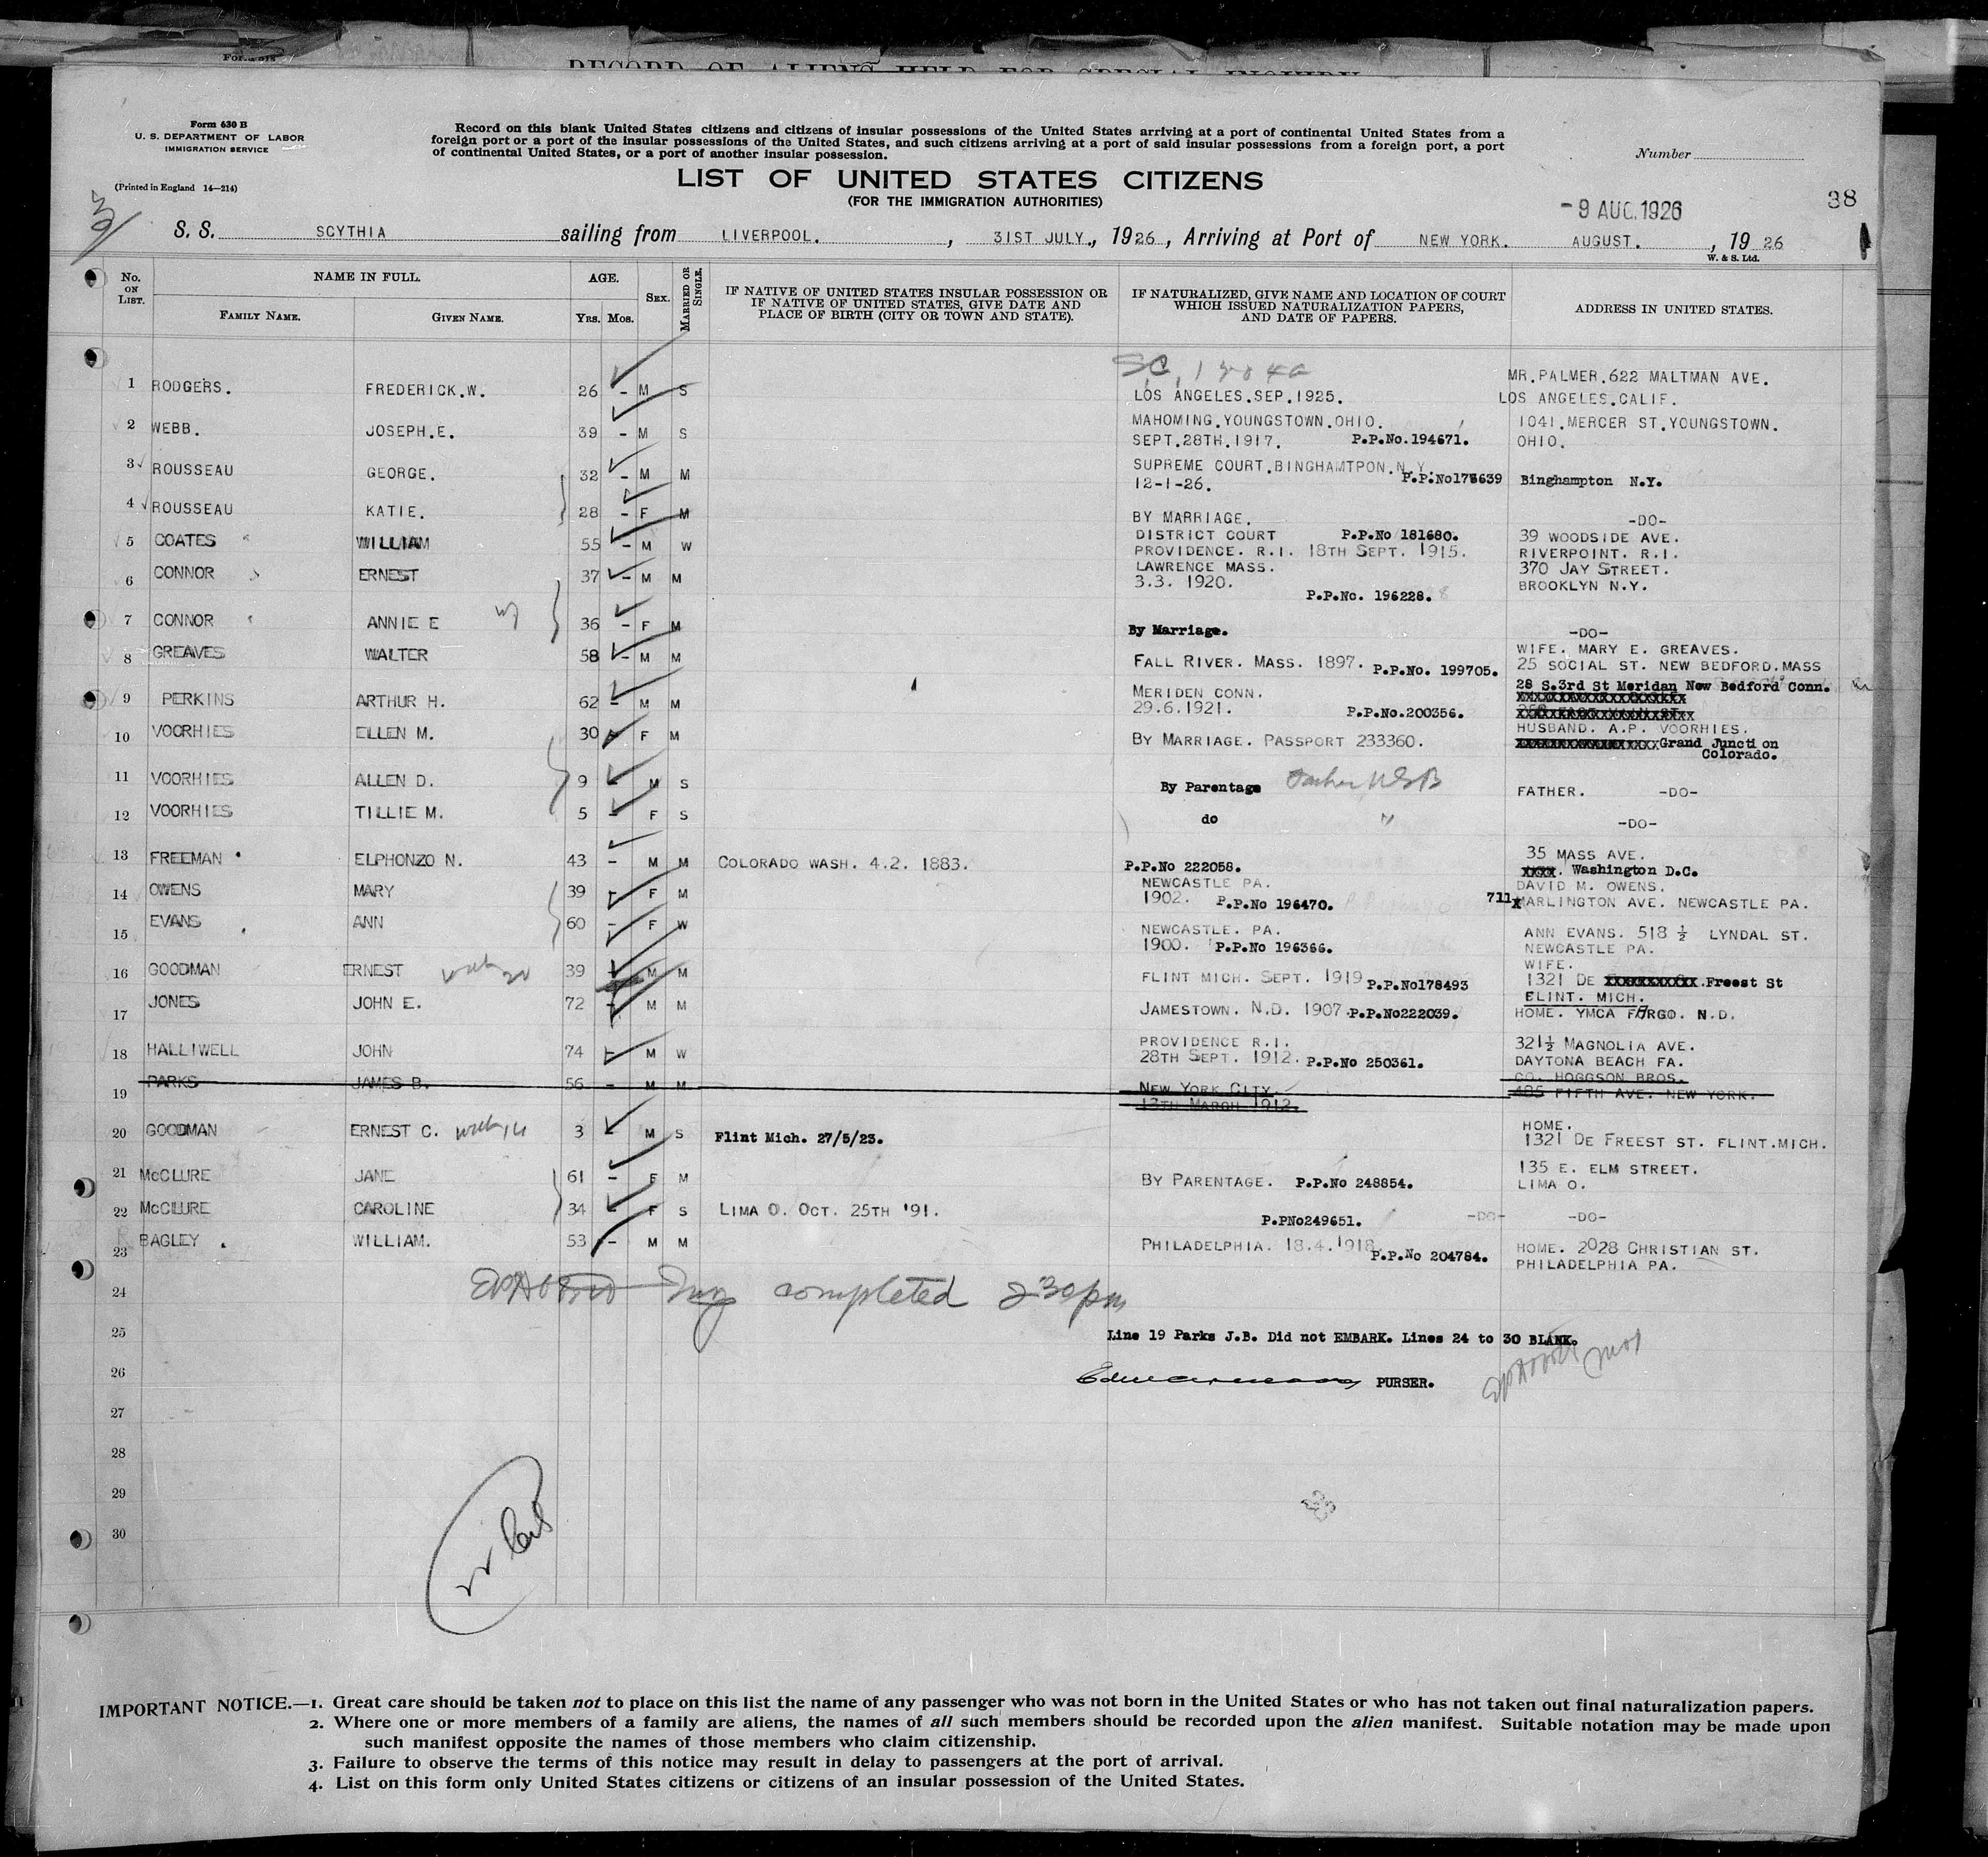 RECORD OF ALIENS HELD FOR SPECIAL INQUIRY
Form 630 B
U. S. DEPARTMENT OF LABOR
IMMIGRATION SERVICE
(Printed in England 14—214)
Record on this blank United States citizens and citizens of insular possessions of the United States arriving at a port of continental United States from a
foreign port or a port of the insular possessions of the United States, and such citizens arriving at a port of said insular possessions from a foreign port, a port
of continental United States, or a port of another insular possession.
Number
LIST OF UNITED STATES CITIZENS
(FOR THE IMMIGRATION AUTHORITIES)
38
-9 AUG.1926
S. S. SCYTHIA sailing from LIVERPOOL. , 31ST JULY., 1926, Arriving at Port of NEW YORK. AUGUST. , 19 26
W. & S. Ltd.
No. ON LIST.
NAME IN FULL.
FAMILY NAME.
GIVEN NAME.
AGE.
Yrs. Mos.
SEX.
MARRIED OR SINGLE.
IF NATIVE OF UNITED STATES INSULAR POSSESSION OR
IF NATIVE OF UNITED STATES, GIVE DATE AND
PLACE OF BIRTH (CITY OR TOWN AND STATE).
IF NATURALIZED, GIVE NAME AND LOCATION OF COURT
WHICH ISSUED NATURALIZATION PAPERS,
AND DATE OF PAPERS.
ADDRESS IN UNITED STATES.
1 RODGERS. FREDERICK.W. 26 - M S LOS ANGELES.SEP.1925. MR.PALMER.622 MALTMAN AVE.
LOS ANGELES.CALIF.
2 WEBB. JOSEPH.E. 39 - M S MAHOMING.YOUNGSTOWN.OHIO. 1041.MERCER ST.YOUNGSTOWN.
SEPT.28TH.1917. P.P.No.194671. OHIO.
3 ROUSSEAU GEORGE. 32 - M M SUPREME COURT.BINGHAMTPON.N.Y.
12-1-26. P.P.No178639 Binghampton N.Y.
4 ROUSSEAU KATIE. 28 - F M BY MARRIAGE. -DO-
5 COATES WILLIAM 55 - M W DISTRICT COURT P.P.No 181680. 39 WOODSIDE AVE.
PROVIDENCE. R.I. 18TH SEPT. 1915. RIVERPOINT. R.I.
6 CONNOR ERNEST 37 - M M LAWRENCE MASS. 370 JAY STREET.
3.3. 1920. BROOKLYN N.Y.
P.P.No. 196228.
7 CONNOR ANNIE E 36 - F M By Marriage. -DO-
8 GREAVES WALTER 58 - M M FALL RIVER. MASS. 1897. P.P.No. 199705. WIFE. MARY E. GREAVES.
25 SOCIAL ST. NEW BEDFORD.MASS
9 PERKINS ARTHUR H. 62 - M M MERIDEN CONN. 28 S.3rd St Meridan New Bedford Conn.
29.6.1921. P.P.No.200356.
10 VOORHIES ELLEN M. 30 F M BY MARRIAGE. PASSPORT 233360. HUSBAND. A.P. VOORHIES.
Grand Junction
Colorado.
11 VOORHIES ALLEN D. 9 - M S By Parentage FATHER. -DO-
12 VOORHIES TILLIE M. 5 - F S do " -DO-
13 FREEMAN ELPHONZO N. 43 - M M COLORADO WASH. 4.2. 1883. P.P.No 222058. 35 MASS AVE.
XXXX. Washington D.C.
14 OWENS MARY 39 - F M NEWCASTLE PA. DAVID M. OWENS.
1902. P.P.No 196470. 711 MARLINGTON AVE. NEWCASTLE PA.
15 EVANS ANN 60 - F W NEWCASTLE. PA. ANN EVANS. 518 ½ LYNDAL ST.
1900. P.P.No 196366. NEWCASTLE PA.
16 GOODMAN ERNEST 39 M M FLINT MICH. SEPT. 1919 P.P.No178493 WIFE.
1321 DE XXXXXXXXXXX.Freest St
FLINT. MICH.
17 JONES JOHN E. 72 - M M JAMESTOWN. N.D. 1907.P.P.No222039. HOME. YMCA FARGO. N.D.
18 HALLIWELL JOHN 74 - M W PROVIDENCE R.I. 321½ MAGNOLIA AVE.
28TH SEPT. 1912. P.P.No 250361. DAYTONA BEACH FA.
19 PARKS JAMES B. 56 - M M NEW YORK CITY CO. HOGGSON BROS.
13TH MARCH 1912 485 FIFTH AVE. NEW YORK.
20 GOODMAN ERNEST C. 3 - M S Flint Mich. 27/5/23. HOME.
1321 DE FREEST ST. FLINT.MICH.
21 McCLURE JANE 61 - F M BY PARENTAGE. P.P.No 248854. 135 E. ELM STREET.
LIMA O.
22 McCLURE CAROLINE 34 - F S LIMA O. OCT. 25TH '91. P.PNo249651. -DO- -DO-
23 BAGLEY WILLIAM. 53 - M M PHILADELPHIA. 18.4.1918 P.P.No 204784. HOME. 2028 CHRISTIAN ST.
PHILADELPHIA PA.
24 completed 2 30 pm
25 Line 19 Parks J.B. Did not EMBARK. Lines 24 to 30 BLANK.
26 PURSER.
27
28
29
30
IMPORTANT NOTICE.—1. Great care should be taken not to place on this list the name of any passenger who was not born in the United States or who has not taken out final naturalization papers.
2. Where one or more members of a family are aliens, the names of all such members should be recorded upon the alien manifest. Suitable notation may be made upon
such manifest opposite the names of those members who claim citizenship.
3. Failure to observe the terms of this notice may result in delay to passengers at the port of arrival.
4. List on this form only United States citizens or citizens of an insular possession of the United States.